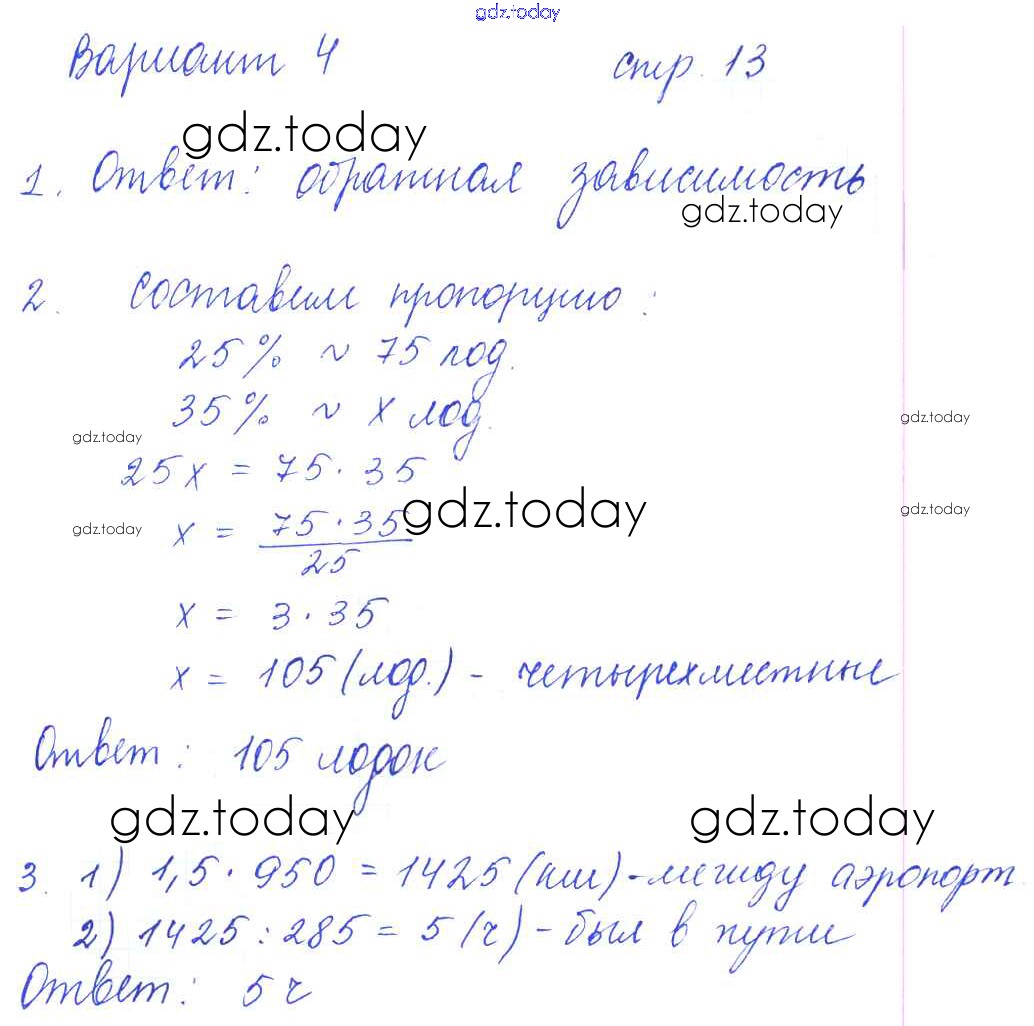 gdz.today
Вариант 4 стр. 13
gdz.today
1. Ответ: обратная зависимость
gdz.today
2. Составим пропорцию:
25% ~ 75 лод.
35% ~ x лод.
gdz.today
gdz.today
25x = 75 · 35
x = 75 · 35 / 25
gdz.today
gdz.today
gdz.today
x = 3 · 35
x = 105 (лод.) - четырехместные
Ответ: 105 лодок
gdz.today gdz.today
3. 1) 1,5 · 950 = 1425 (км) - между аэропорт.
2) 1425 : 285 = 5 (ч) - был в пути
Ответ: 5 ч